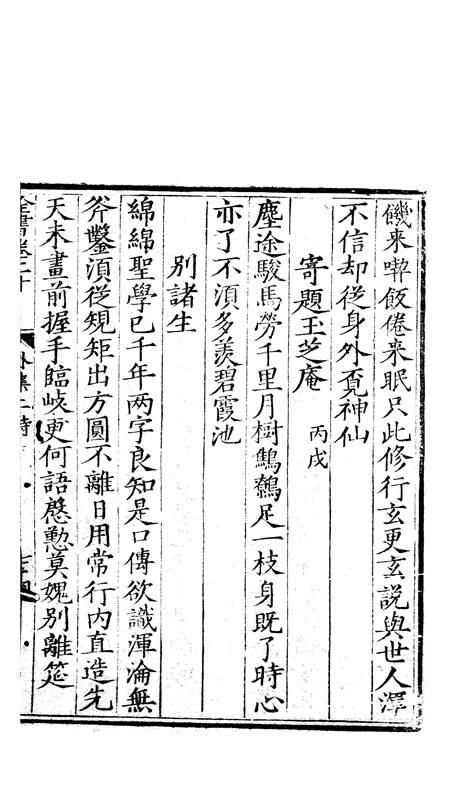 饑來喫飯倦來眠只此修行玄更玄說與世人渾
不信却從身外覓神仙
寄題玉芝庵 丙戌
塵途駿馬勞千里月樹鷦鷯足一枝身既了時心
亦了不須多羨碧霞池
別諸生
綿綿聖學已千年两字良知是口傳欲識渾淪無
斧鑿須從規矩出方圓不離日用常行內直造先
天未畫前握手臨岐更何語慇懃莫媿別離筵
全書卷二十 外集二詩